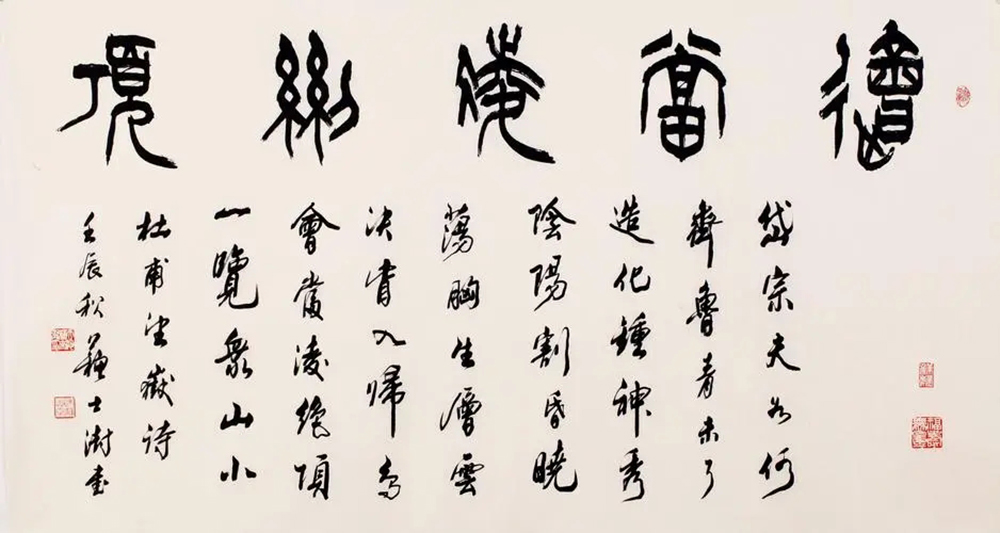 會當凌絕頂
岱宗夫如何
齊魯青未了
造化鍾神秀
陰陽割昏曉
蕩胸生層雲
決眥入歸鳥
會當凌絕頂
一覽眾山小
杜甫望嶽詩
壬辰秋蘇士澍書